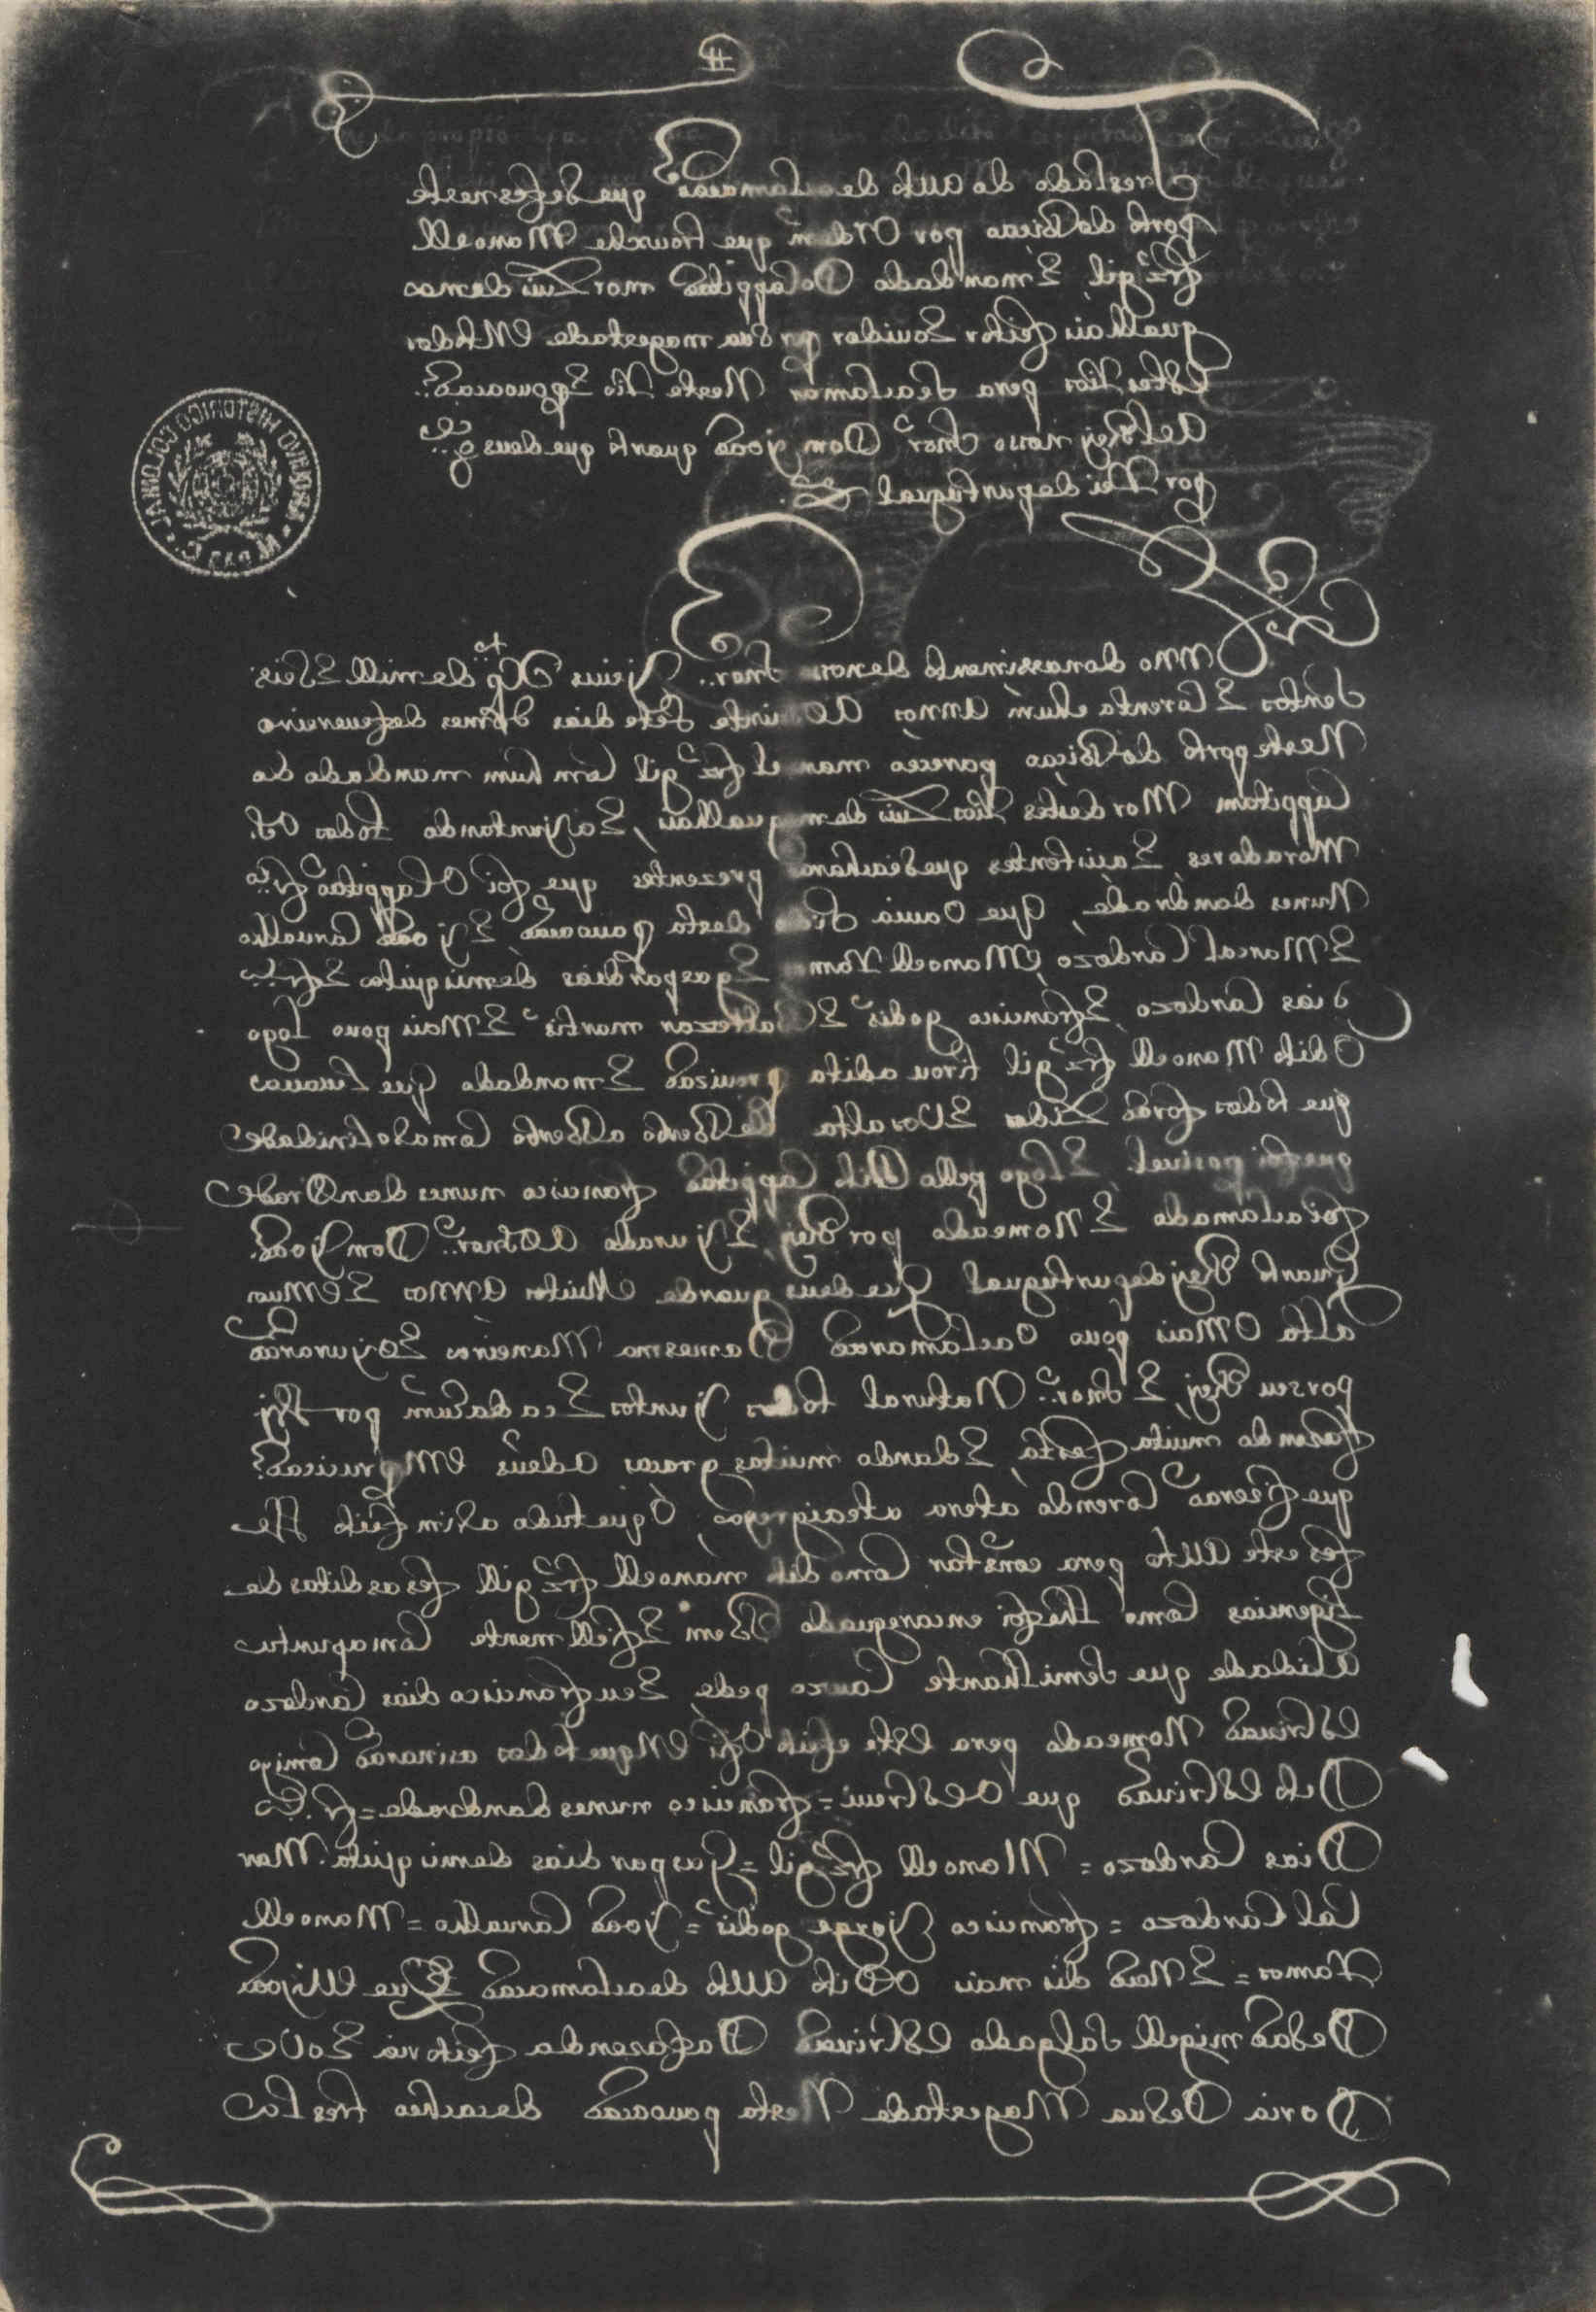 Treslado do auto de aclamacaõ que se fes neste
porto do Biçao por Ordẽ que trouxe Manoell
frz̃ gil E mandado Do Cappitaõ mor Luis de mag
qualhais feitor Eouidor por Sua magestade Nestes
Rios pera se aclamar Neste Rio E pouoacaõ
Ael Rej nosso Snõr Dom joaõ quarto que deus g.de
por Rei de purtugual
Anno do nassimento de noso Snor Jesus xp.to de mill E Seis
sentos E Corenta e hum annos Aos uinte sete dias do mes de feuereiro
Neste porto do Biçao pareceo manoel frz̃ gil com hum mandado do
Cappitam Mor destes Rios Luis de magualhais, E ajuntando todos os
Moradores, E asistentes que se acharaõ prezentes que foi O Cappitaõ fr.co
Nunes dandrade, que Ouuia desta pouoacaõ E joaõ Carualho
E Marcal Cardozo E Manoell Ramos E gaspar dias de misquita E fr.co
dias Cardozo E francisco godis E baltezar martis E Mais pouo Logo
O dito Manoell frz̃ gil tirou a dita prouizaõ E mandado que Leuaua
que todos foraõ Lidos E Vos alta de Verbo a Verbo Com a solenidade
que foi posiuel, E Logo pello dito Cappitaõ francisco nunes dandrade
foi aclamado E Nomeado por Rej, E jurado Ao Snor Dom Joaõ
Quarto Rej de purtugual que deus guarde Muitos Annos E Em uos
alta O Mais pouo O aclamaraõ Da mesma Maneira E O juraraõ
por seu Rej, E Snor Natural todos juntos E cada hum por Si
fazendo muita festa, E dando muitas gracas a deus Em prociçaõ
que fizeraõ Corendo a tera ate a igreja, O que tudo asim feito Se
fes este Auto pera constar Como dito manoell frz̃ gill fes as ditas de
ligencias Como Lhe foi encareguado Bem E fiellmente Com a puntu
alidade que Semilhante Cauzo pede, E eu francisco dias Cardozo
escriuaõ Nomeado pera este efeito o fis Em que todos asinaraõ Comigo
Dito escriuaõ que O escreui = francisco nunes dandrade = fr.co
Dias Cardozo = Manoell frz̃ gil = Gaspar dias de misquita Mar
Cal Cardozo = francisco Jorge godis = Joaõ Carualho = Manoell
Ramos = E Naõ dis mais O Dito Auto de aclamacaõ Que Eu joaõ
De saõ migell Salgado escriuaõ Da fazenda feitoria E oVe
Doria De Sua Magestade Nesta pouoacaõ de cacheo tresla